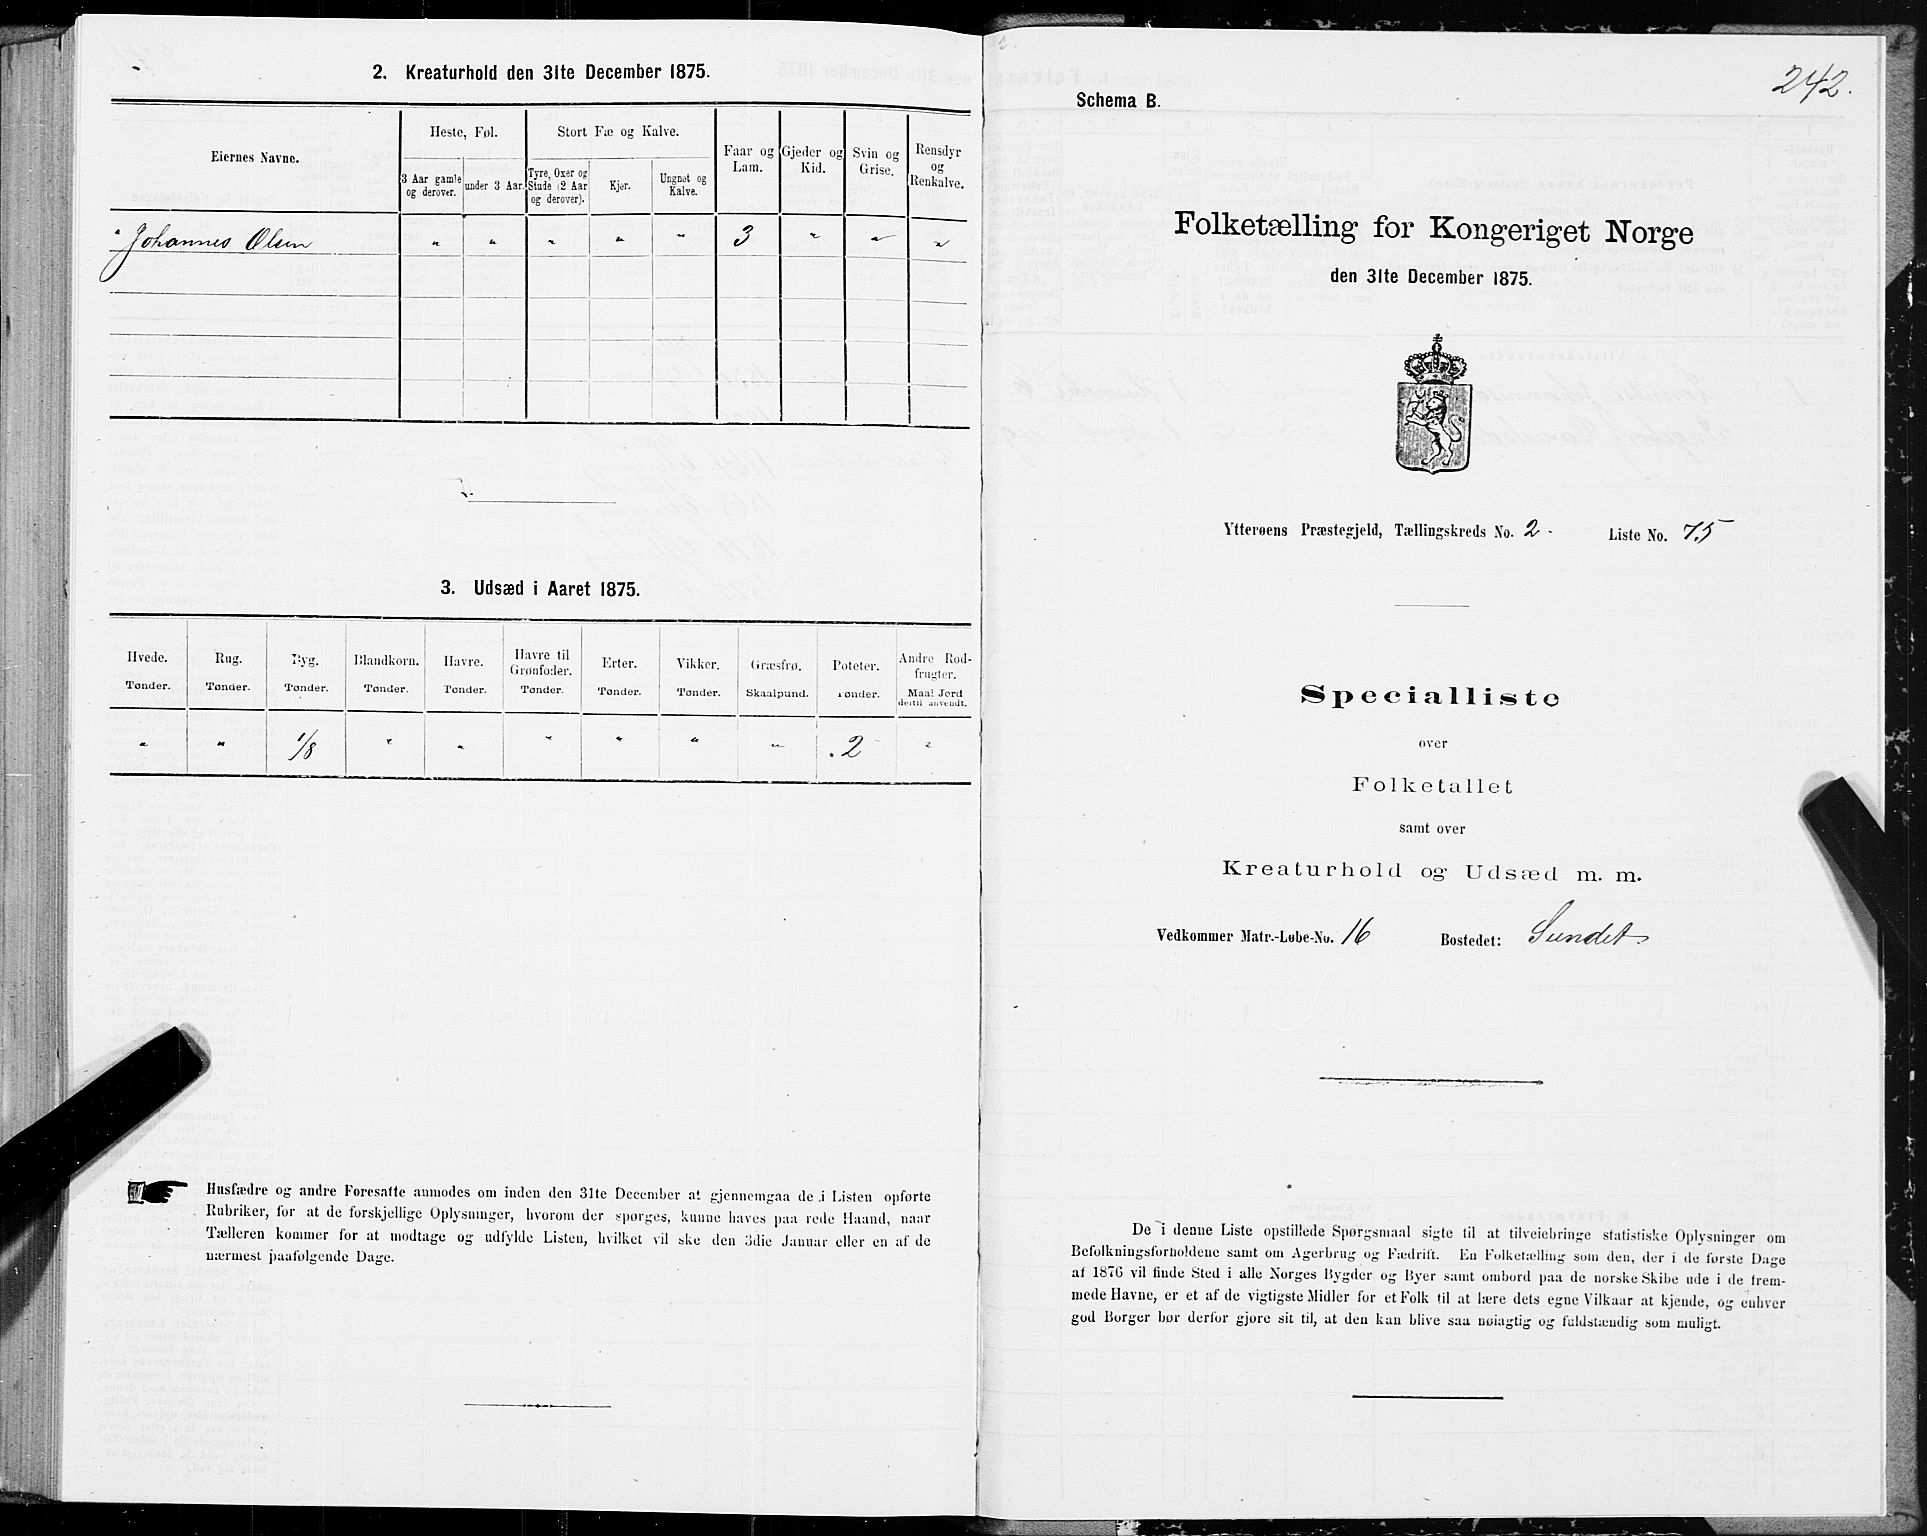 2. Kreaturhold den 31te December 1875.
Eiernes Navne.
Heste, Føl.
Stort Fæ og Kalve.
Faar og Lam.
Gjeder og Kid.
Svin og Grise.
Rensdyr og Renkalve.
3 Aar gamle og derover.
under 3 Aar.
Tyre, Oxer og Stude (2 Aar og derover).
Kjør.
Ungnøt og Kalve.
Johannes Olsen " " " " " 3 " " "
3. Udsæd i Aaret 1875.
Hvede. Rug. Byg. Blandkorn. Havre. Havre til Grønfoder. Erter. Vikker. Græsfrø. Poteter. Andre Rodfrugter.
Tønder. Tønder. Tønder. Tønder. Tønder. Tønder. Tønder. Tønder. Skaalpund. Tønder. Maal Jord dertil anvendt.
" " 1/8 " " " " " " 2 "
Husfædre og andre Foresatte anmodes om inden den 31te December at gjennemgaa de i Listen opførte
Rubriker, for at de forskjellige Oplysninger, hvorom der spørges, kunne haves paa rede Haand, naar
Tælleren kommer for at modtage og udfylde Listen, hvilket vil ske den 3die Januar eller en af de
nærmest paafølgende Dage.
242.
Schema B.
Folketælling for Kongeriget Norge
den 31te December 1875.
Ytterøens Præstegjeld, Tællingskreds No. 2. Liste No. 75
Specialliste
over
Folketallet
samt over
Kreaturhold og Udsæd m. m.
Vedkommer Matr.-Løbe-No. 16 Bostedet: Sundet
De i denne Liste opstillede Spørgsmaal sigte til at tilveiebringe statistiske Oplysninger om
Befolkningsforholdene samt om Agerbrug og Fædrift. En Folketælling som den, der i de første Dage
af 1876 vil finde Sted i alle Norges Bygder og Byer samt ombord paa de norske Skibe ude i de frem-
mede Havne, er et af de vigtigste Midler for et Folk til at lære dets egne Vilkaar at kjende, og enhver
god Borger bør derfor gjøre sit til, at den kan blive saa nøiagtig og fuldstændig som muligt.